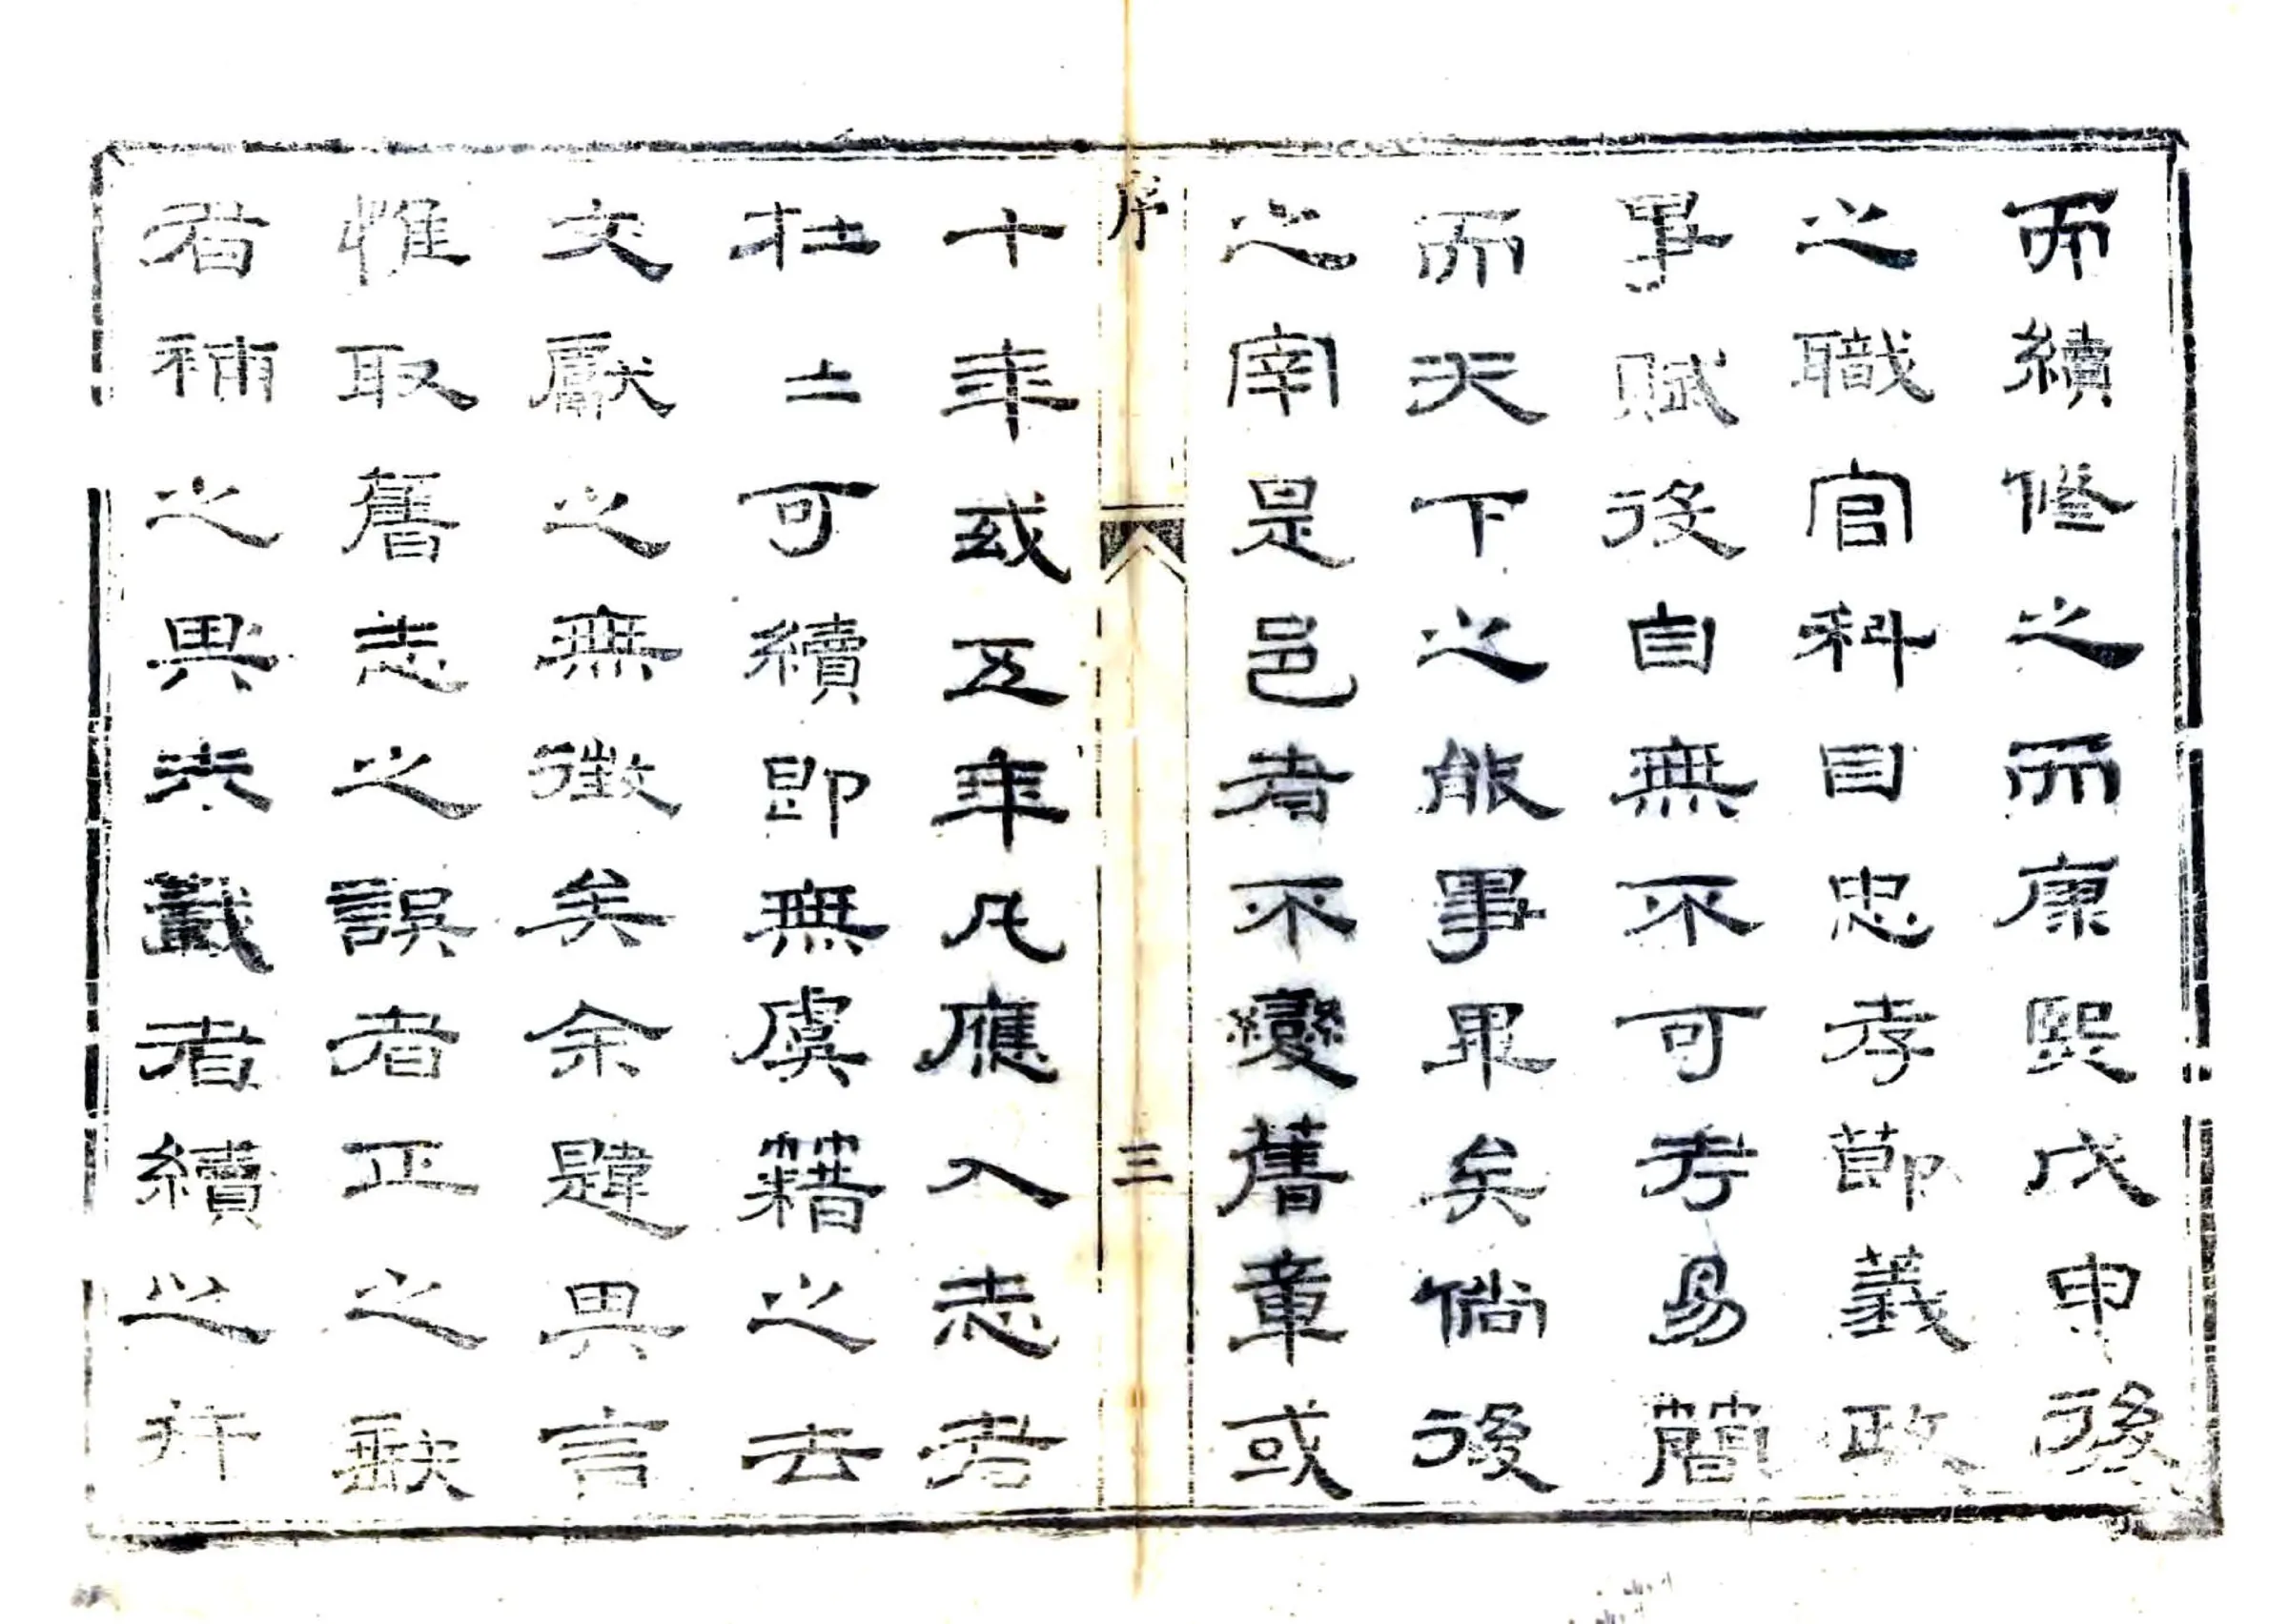 而續修之而康熙戊申後
之職官科目忠孝節義政
事賦役自無不可考易簡
而天下之能事畢矣倘後
之宰是邑者不變舊章或
序
三
十年或五年凡應入志者
壯士可續即無虞籍之去
文獻之無徵矣余韙異言
惟取舊志之誤者正之缺
者補之異未載者續之